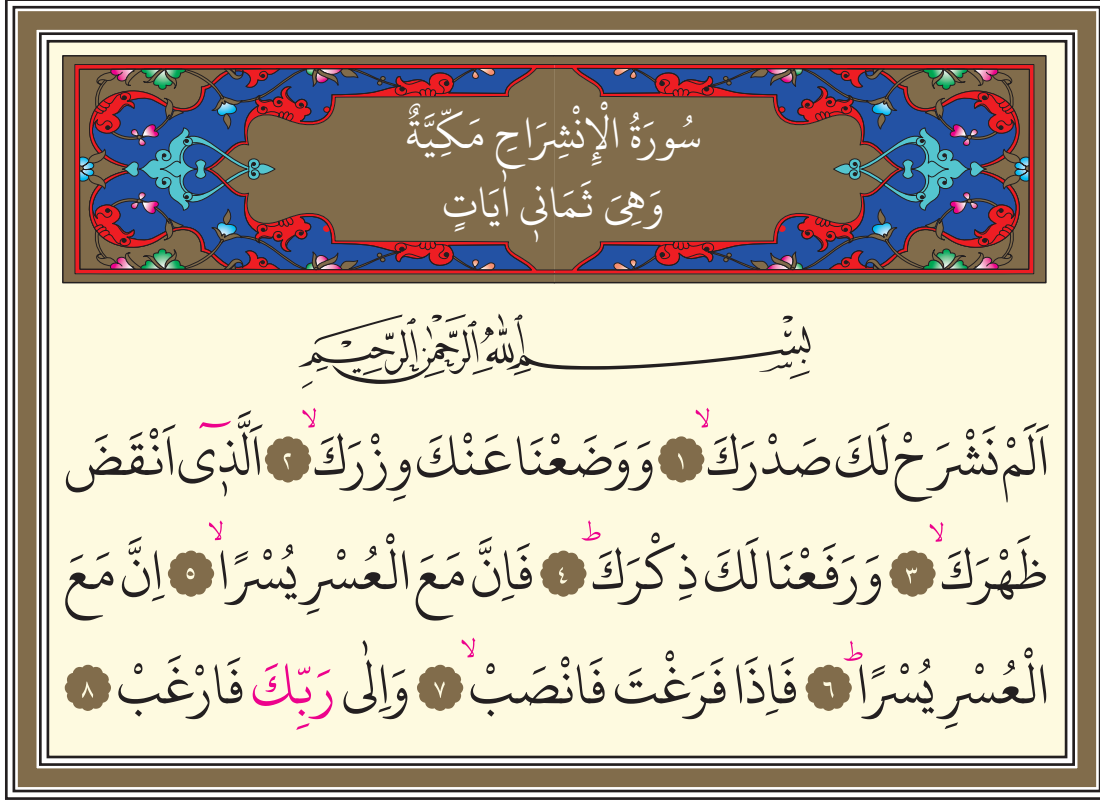 سُورَةُ الْاِنْشِرَاحِ مَكِّيَّةٌ
وَهِيَ ثَمَانٖي اٰيَاتٍ
بِسْمِ اللّٰهِ الرَّحْمٰنِ الرَّحٖيمِ
اَلَمْ نَشْرَحْ لَكَ صَدْرَكَۙ ١ وَوَضَعْنَا عَنْكَ وِزْرَكَۙ ٢ اَلَّذٖٓى اَنْقَضَ
ظَهْرَكَۙ ٣ وَرَفَعْنَا لَكَ ذِكْرَكَؕ ٤ فَاِنَّ مَعَ الْعُسْرِ يُسْرًاۙ ٥ اِنَّ مَعَ
الْعُسْرِ يُسْرًاؕ ٦ فَاِذَا فَرَغْتَ فَانْصَبْۙ ٧ وَاِلٰى رَبِّكَ فَارْغَبْ ٨